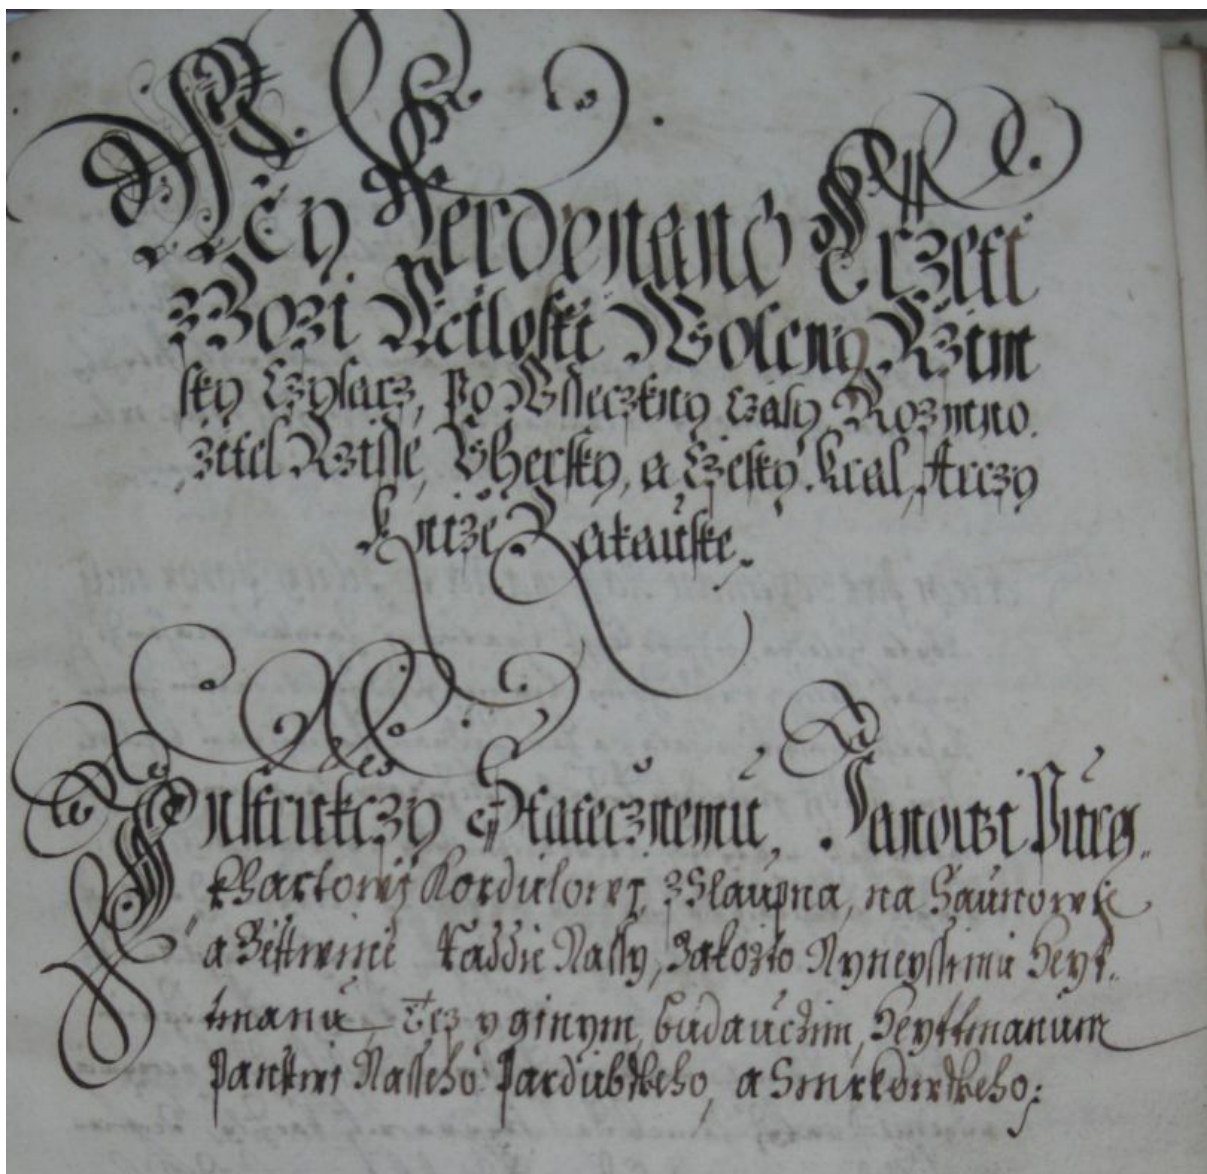 My Ferdynand Trzeti
z Bozi Milosti Woleny Rzim
sky Czysarz, po Wsseczkny Czasy Rozmno.
zitel Rzisse, Vhersky, a Czesky Kral, Arczy
Knize Rakauske.
Instrukczy Statecznemu, Janowi Purg„
khartowi Kordulowi z Slaupna, na Saunowie
a Bestwinie Raddie Nassy, Jakozto Nyneyssimu Heyt„
tmanu, Tez y ginym budauczim, Heyttmanum
Panstwi Nasseho Pardubskeho, a Smrkowskeho;